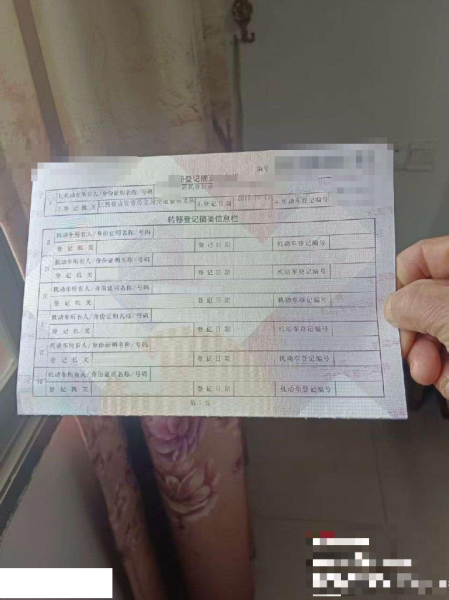 编号
1.机动车所有人/身份证明名称/号码
2.登记机关
3.登记日期
4.机动车登记编号
转移登记摘要信息栏
机动车所有人/身份证明名称/号码
登记机关 登记日期 机动车登记编号
机动车所有人/身份证明名称/号码
登记机关 登记日期 机动车登记编号
机动车所有人/身份证明名称/号码
登记机关 登记日期 机动车登记编号
机动车所有人/身份证明名称/号码
登记机关 登记日期 机动车登记编号
机动车所有人/身份证明名称/号码
登记机关 登记日期 机动车登记编号
机动车所有人/身份证明名称/号码
登记机关 登记日期 机动车登记编号
第1页